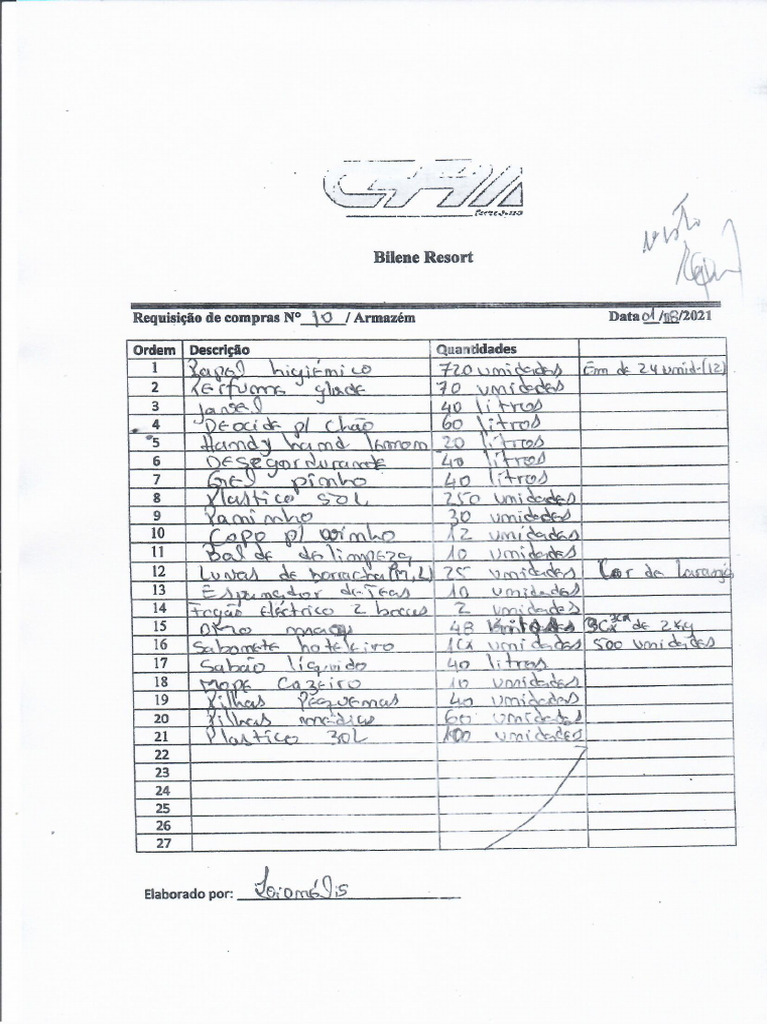 Visto
Bilene Resort
Requisição de compras N° 10 / Armazém Data 01/08/2021
Ordem Descrição Quantidades
1 Papel higiémico 720 umidades Em de 24 umid-(12)
2 Perfume glade 70 umidades
3 Javel 40 litros
4 DEOcide p/ chão 60 litros
5 Handy hamd lemom 20 litros
6 DESEgordurante 40 litros
7 Gel pinho 40 litros
8 Plastico 50L 250 umidades
9 Paninho 30 umidades
10 Copo p/ vinho 12 umidades
11 Bal de de limpeza 10 umidades
12 Luvas de borracha (M, L) 25 umidades Cor de Laranja
13 Espanador de Teas 10 umidades
14 Fogão Eléctrico 2 bocas 2 umidades
15 OMO 48 3Cx de 2 kg
16 Sabomete hoteleiro 1Cx umidades 500 umidades
17 Sabão líquido 40 litros
18 Mope Cazeiro 10 umidades
19 Pilhas PEquemas 40 umidades
20 Pilhas médias 60 umidades
21 Plastico 30L 100 umidades
22
23
24
25
26
27
Elaborado por: